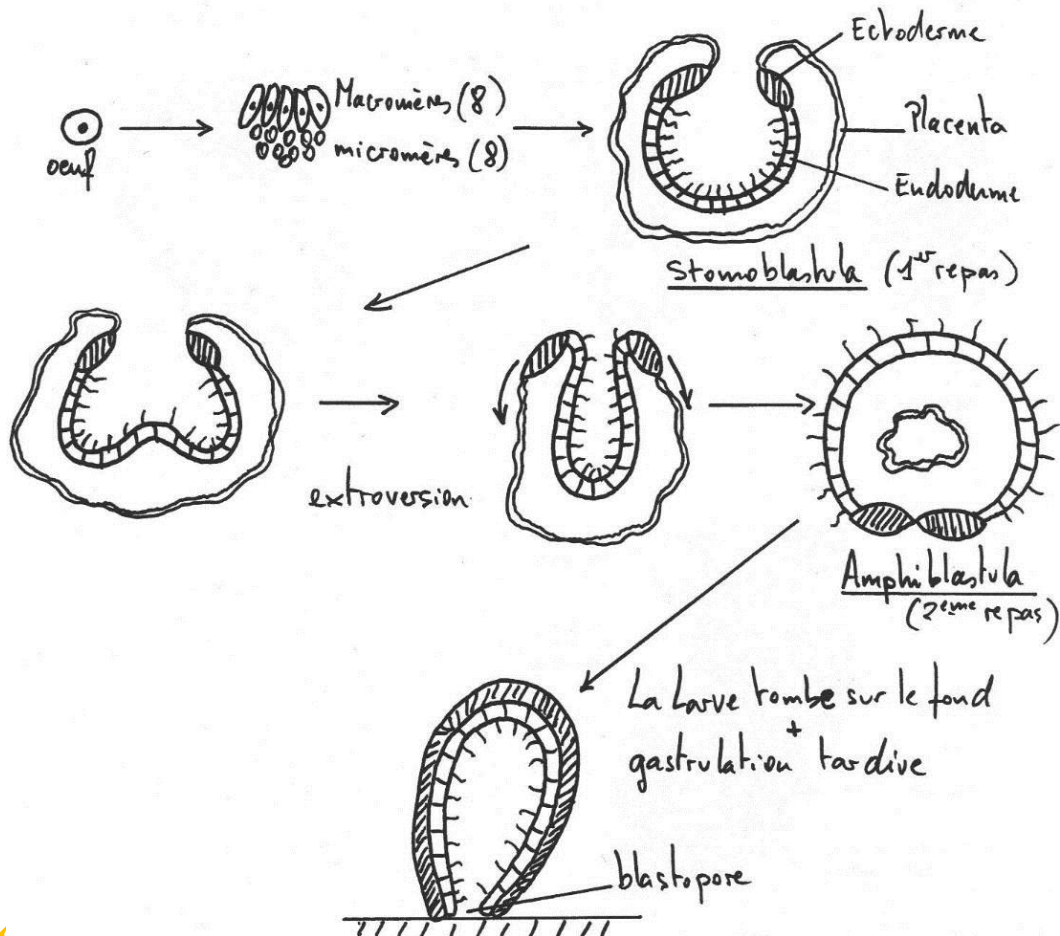 Ectoderme
Macromères (8)
micromères (8)
oeuf
Placenta
Endoderme
Stomoblastula (1er repas)
extroversion
Amphiblastula
(2eme repas)
La Larve tombe sur le fond
+
gastrulation tardive
blastopore